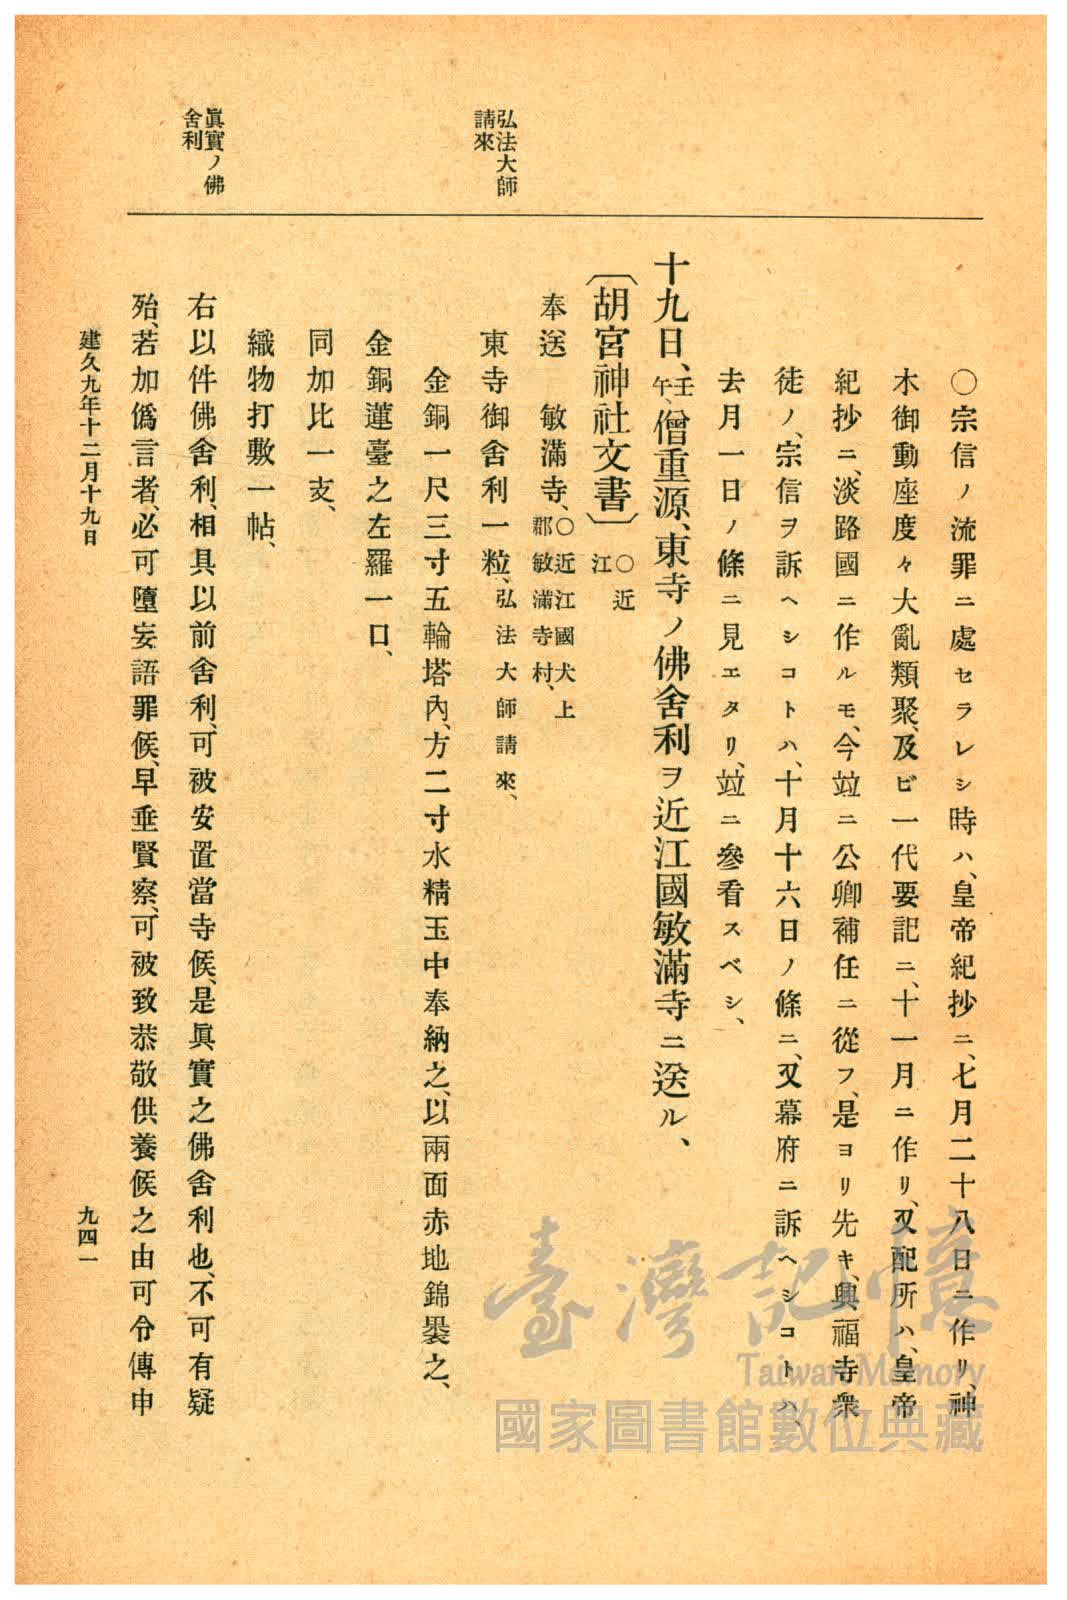 弘法大師
請來
眞實ノ佛
舍利
○宗信ノ流罪ニ處セラレシ時ハ、皇帝紀抄ニ、七月二十八日ニ作リ、神
木御動座度々大亂類聚、及ビ一代要記ニ、十一月ニ作リ、又配所ハ、皇帝
紀抄ニ、淡路國ニ作ルモ、今竝ニ公卿補任ニ從フ、是ヨリ先キ、興福寺衆
徒ノ、宗信ヲ訴ヘシコトハ、十月十六日ノ條ニ、又幕府ニ訴ヘシコトハ、
去月一日ノ條ニ見エタリ、竝ニ參看スベシ、
十九日、壬午、僧重源、東寺ノ佛舍利ヲ近江國敏滿寺ニ送ル、
〔胡宮神社文書〕○近江
奉送 敏滿寺、○近江國犬上郡敏滿寺村、
東寺御舍利一粒、弘法大師請來、
金銅一尺三寸五輪塔內、方二寸水精玉中奉納之、以兩面赤地錦褁之、
金銅蓮臺之左羅一口、
同加比一支、
織物打敷一帖、
右以件佛舍利、相具以前舍利、可被安置當寺候、是眞實之佛舍利也、不可有疑
殆、若加僞言者、必可墮妄語罪候、早垂賢察、可被致恭敬供養候之由可令傳申
建久九年十二月十九日
九四一
臺灣記憶
Taiwan Memory
國家圖書館數位典藏